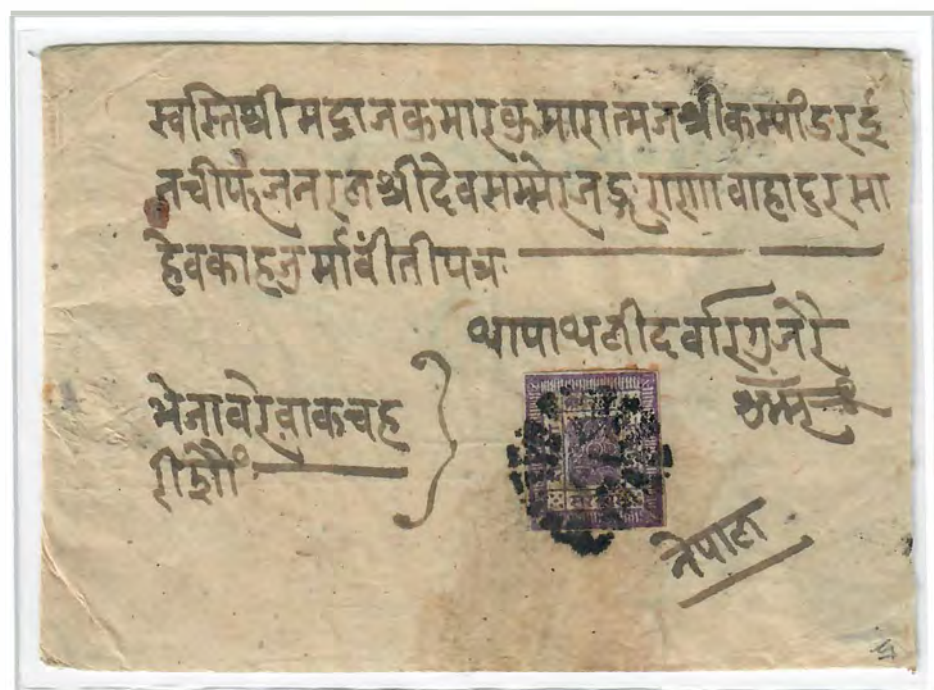 स्वस्तिश्रीमद्राजकुमारकुमारात्मजश्रीकम्यांडरई
नचीफजनरलश्रीदेवसम्सेरजङ्गराणावाहादुरसा
हेवकाहजुर्मावींतीपत्र
थापाथलीदर्वारगुजेरै
भेजावरेवाकचह
रीशौं
नेपाल